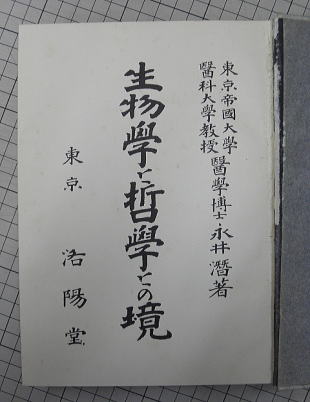 東京帝國大學
醫科大學教授 醫學博士 永井潛著
生物學と哲學との境
東京 洛陽堂